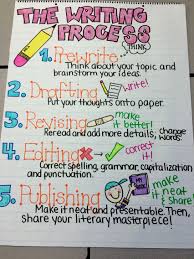 THE WRITING
PROCESS
THINK
1. Prewrite
Think about your topic, and
brainstorm your ideas.
2. Drafting write!
Put your thoughts onto paper.
3. Revising make it better!
Reread and add more details, change words.
4. Editing correct it!
Correct spelling, grammar, capitalization
and punctuation.
5. Publishing make it neat & share
Make it neat and presentable. Then,
share your literary masterpiece!